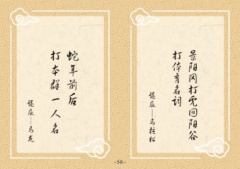 景阳冈打虎回阳谷
打体育名词
谜底……马拉松
蛇年前后
打本群一人名
谜底……马龙